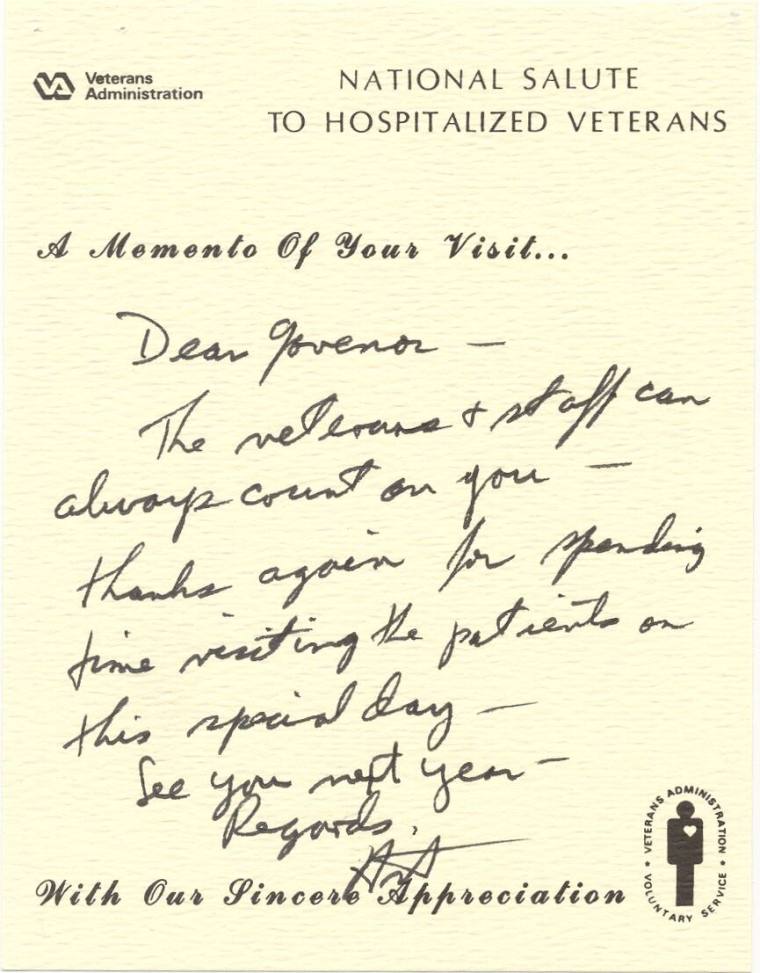 VA Veterans
Administration
NATIONAL SALUTE
TO HOSPITALIZED VETERANS
A Memento Of Your Visit...
Dear Govenor —
The veterans & staff can
always count on you —
thanks again for spending
time visiting the patients on
this special day —
See you next year —
Regards,
With Our Sincere Appreciation
VETERANS ADMINISTRATION • VOLUNTARY SERVICE •